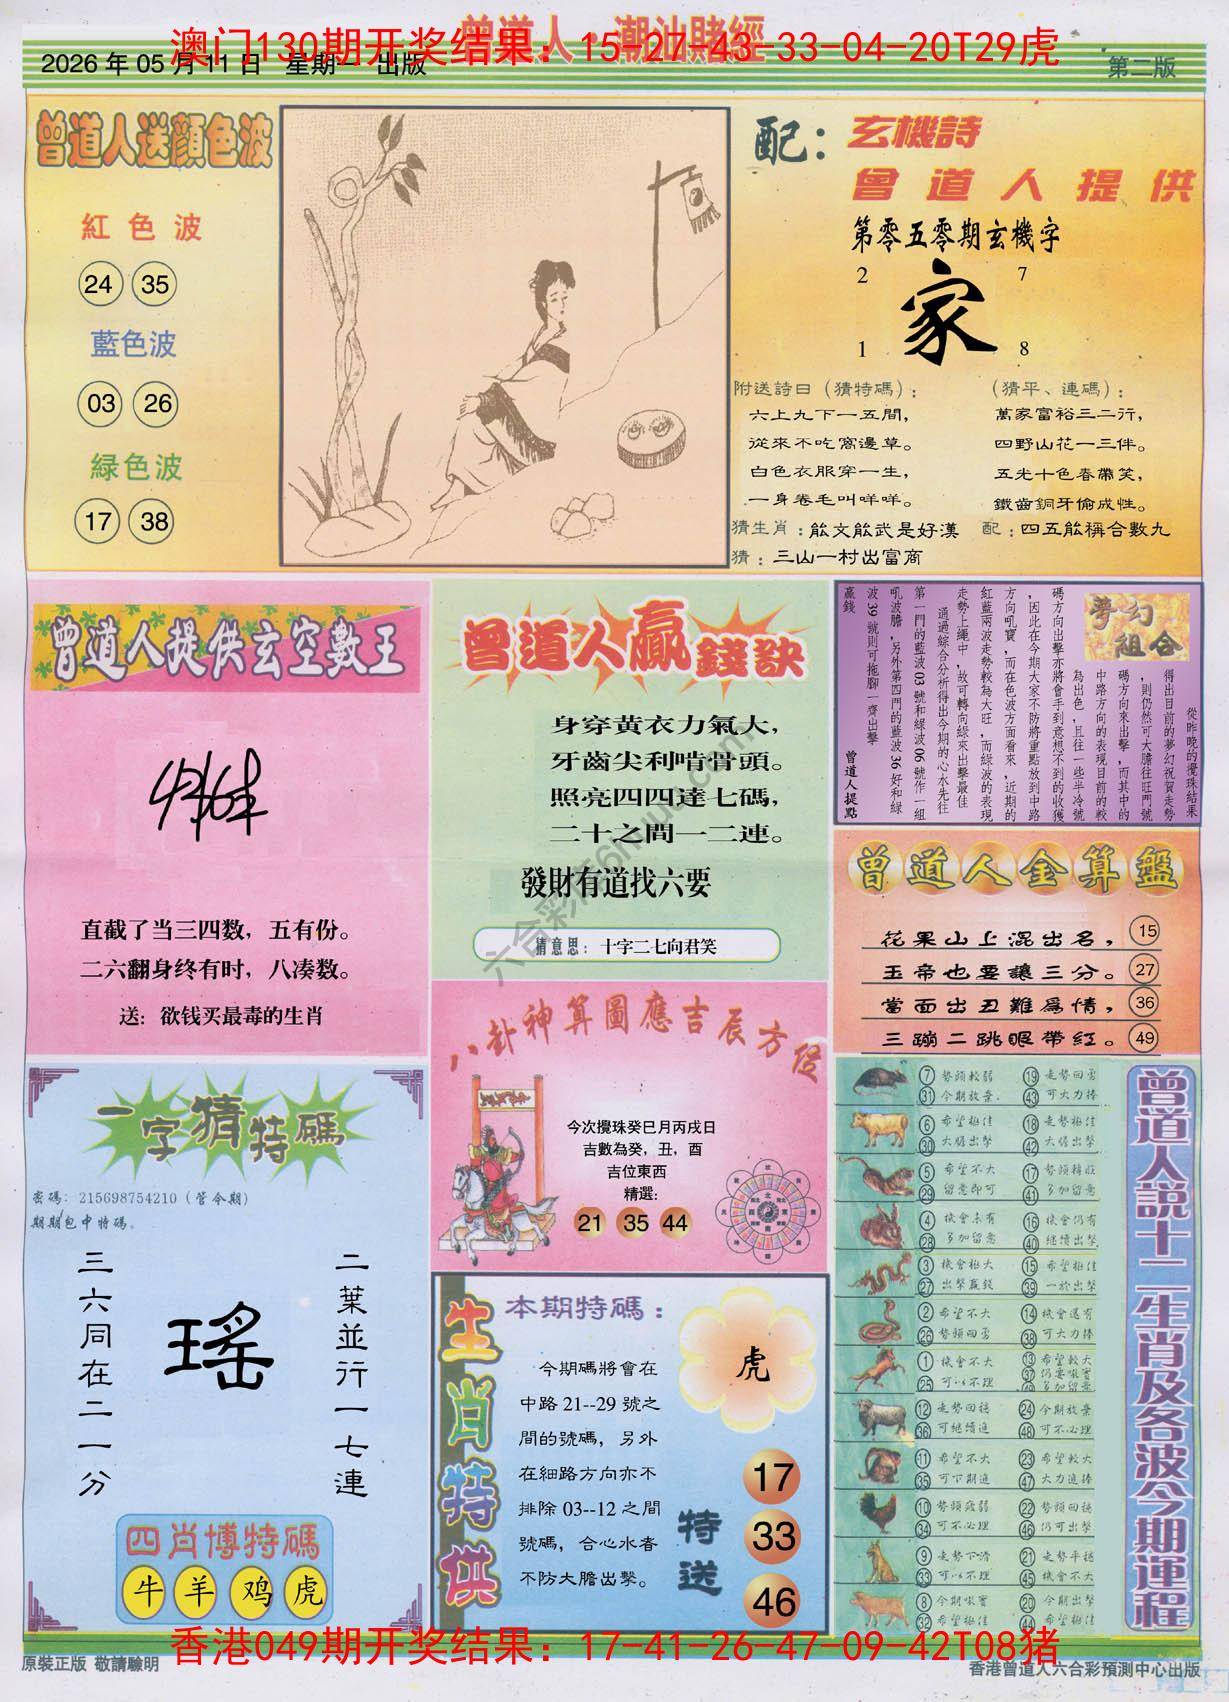 曾道人·潮汕賭經
澳门130期开奖结果：15-27-43-33-04-20T29虎
2026 年 05 月 11 日 星期一 出版
第二版
曾道人送顏色波
紅色波
24 35
藍色波
03 26
緑色波
17 38
配：玄機詩
曾道人提供
第零五零期玄機字
2 7
家
1 8
附送詩日（猜特碼）：
六上九下一五間，
從來不吃窩邊草。
白色衣服穿一生，
一身卷毛叫咩咩。
（猜平、連碼）：
萬家富裕三二行，
四野山花一三伴。
五光十色春帶笑，
鐵齒銅牙偷成性。
猜生肖：能文能武是好漢
配：四五能稱合數九
猜：三山一村出富商
曾道人提供玄空數王
直截了当三四数，五有份。
二六翻身终有时，八凑数。
送：欲钱买最毒的生肖
曾道人贏錢訣
身穿黃衣力氣大，
牙齒尖利啃骨頭。
照亮四四達七碼，
二十之間一二連。
發財有道找六要
猜意思：十字二七向君笑
夢幻組合
從昨晚的攪珠結果
得出目前的夢幻祝賀走勢
，則仍然可大膽往旺門號
碼方向來出擊，而其中的
中路方向的表現目前的較
為出色，且往一些半冷號
碼方向出擊亦將會手到意想不到的收獲
，因此在今期大家不防將重點放到中路
方向吼寶，而在色波方面看來，近期的
紅藍兩波走勢較為大旺，而綠波的表現
走勢上繩中，故可轉向綠來出擊最佳
通過綜合分析得出今期的心水先往
第一門的藍波03號和綠波06號作一組
吼波膽，另外第四門的藍波36好和綠
波39號則可拖腳一齊出擊
贏錢
曾道人提點
曾道人金算盤
花果山上混出名，15
玉帝也要讓三分。27
當面出丑難為情，36
三蹦二跳眼帶紅。49
八卦神算圖應吉辰方位
今次攪珠癸巳月丙戌日
吉數為癸，丑，酉
吉位東西
精選：
21 35 44
一字猜特碼
密碼：215698754210（管今期）
期期包中特碼。
二葉並行一七連
瑶
三六同在二一分
四肖博特碼
牛 羊 鸡 虎
生肖特供
本期特碼：
虎
今期碼將會在
中路 21--29 號之
間的號碼，另外
在細路方向亦不
排除 03--12 之間
號碼，合心水者
不防大膽出擊。
特送
17
33
46
曾道人説十二生肖及各波今期運程
7 勢頭較弱 19 走勢回勇
31 今期放棄 43 可大力捧
6 希望極佳 18 走勢極佳
30 大膽出擊 42 大膽出擊
5 希望不大 17 勢頭轉旺
29 留意即可 41 多加留意
4 機會未有 16 機會仍有
28 多加留意 40 繼續出擊
3 機會極大 15 希望極佳
27 出擊贏錢 39 一於出擊
2 希望不大 14 機會還有
26 勢頭回勇 38 可大力捧
1 機會不大 13 希望較大
25 可以不理 37 仍要吼實
12 走勢回穩 24 今期放棄
36 可繼續追 48 可不必理
11 希望不大 23 希望較大
35 可下期追 47 大力追捧
10 勢頭疲弱 22 勢頭回穩
34 可不必理 46 仍可出擊
9 走勢下滑 21 走勢平穩
33 可以不理 45 機會不大
8 今期吼實 20 今期出擊
32 希望極佳 44 希望極佳
香港049期开奖结果：17-41-26-47-09-42T08猪
原裝正版 敬請驗明
香港曾道人六合彩預測中心出版